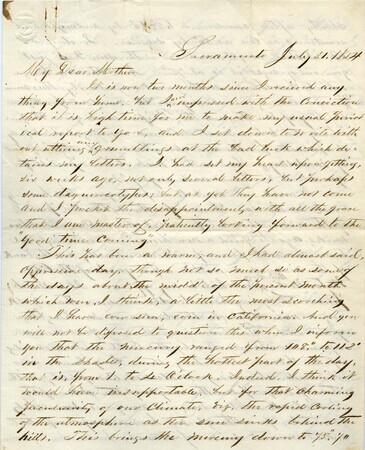 Sacramento July 21. 1854
My Dear Mother
It is now two months since I received any
thing from home. But I'm impressed with the conviction
that it is high time for me to make my usual period
ical report to you, and I set down to write with
out uttering any grumblings at the bad luck which de
tains my letters. I had set my heart upon getting,
six weeks ago, not only several letters, but perhaps
some daguerreotypes; but as yet they have not come
and I pocket the disappointment with all the grace
that I am master of, patiently looking forward to the
"Good time coming".
This has been a warm, and I had almost said,
oppressive day, though not so much so as some of
the days about the middle of the present month
which were, I think, a little the most scorching
that I have ever seen, even in California. And you
will not be disposed to question this when I inform
you that the mercury ranged from 108.° to 113°
in the shade, during the hottest part of the day,
that is, from 1. to 4 o'clock. Indeed, I think it
would have been insupportable, but for that charming
peculiarity of our climate, viz. the rapid cooling
of the atmosphere as the sun sinks behind the
hills. This brings the mercury down to 75°, 70